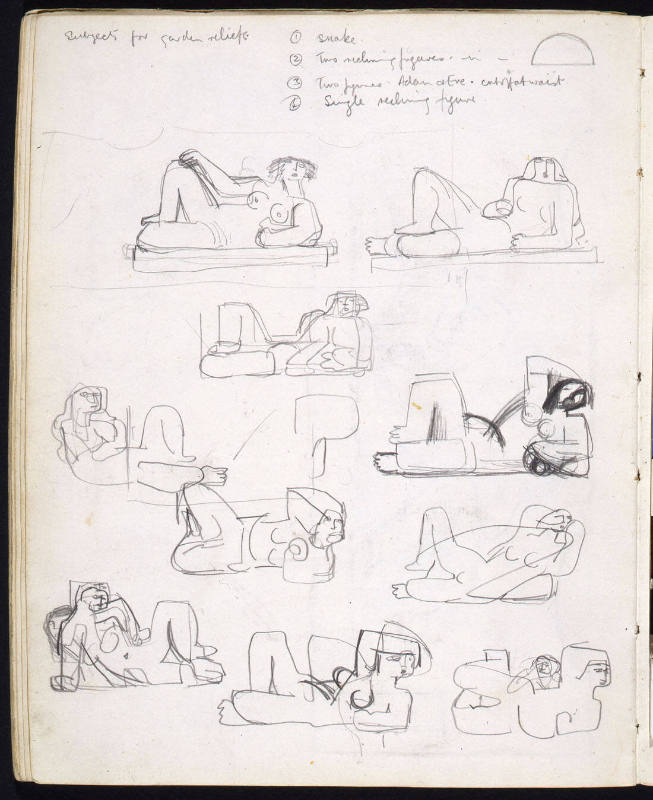 Subjects for garden reliefs
① Snake.
② Two reclining figures. in
③ Two figures. Adam & Eve. cut off at waist
④ Single reclining figure